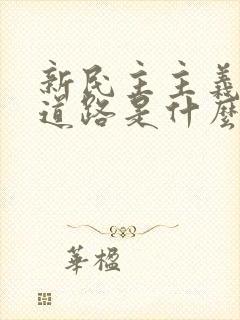 新民主主義
道路是什麼
華楹